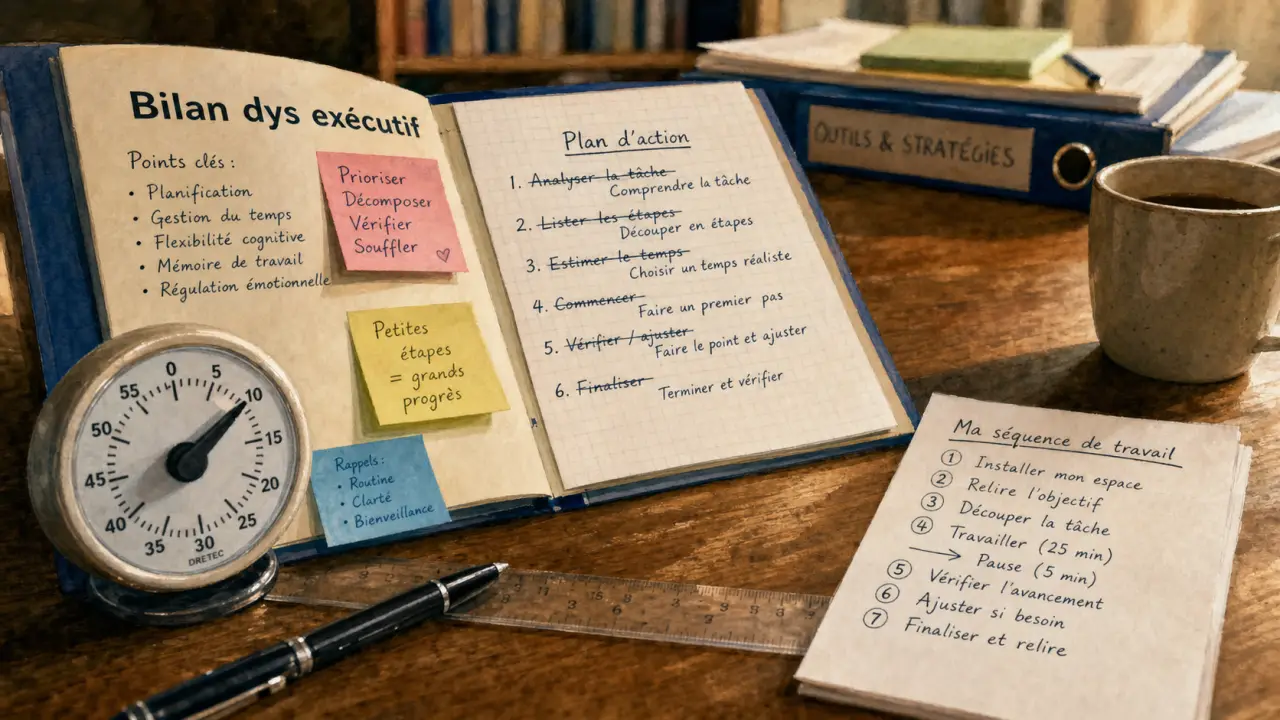 Bilan dys exécutif
Points clés :
• Planification
• Gestion du temps
• Flexibilité cognitive
• Mémoire de travail
• Régulation émotionnelle
Prioriser
Décomposer
Vérifier
Souffler
Petites
étapes
= grands
progrès
Rappels :
• Routine
• Clarté
• Bienveillance
Plan d'action
1. Analyser la tâche
Comprendre la tâche
2. Lister les étapes
Découper en étapes
3. Estimer le temps
Choisir un temps réaliste
4. Commencer
Faire un premier pas
5. Vérifier / ajuster
Faire le point et ajuster
6. Finaliser
Terminer et vérifier
OUTILS & STRATÉGIES
Ma séquence de travail
1 Installer mon espace
2 Relire l'objectif
3 Découper la tâche
4 Travailler (25 min)
→ Pause (5 min)
5 Vérifier l'avancement
6 Ajuster si besoin
7 Finaliser et relire
0
5
10
15
20
25
30
35
40
45
50
55
DRETEC